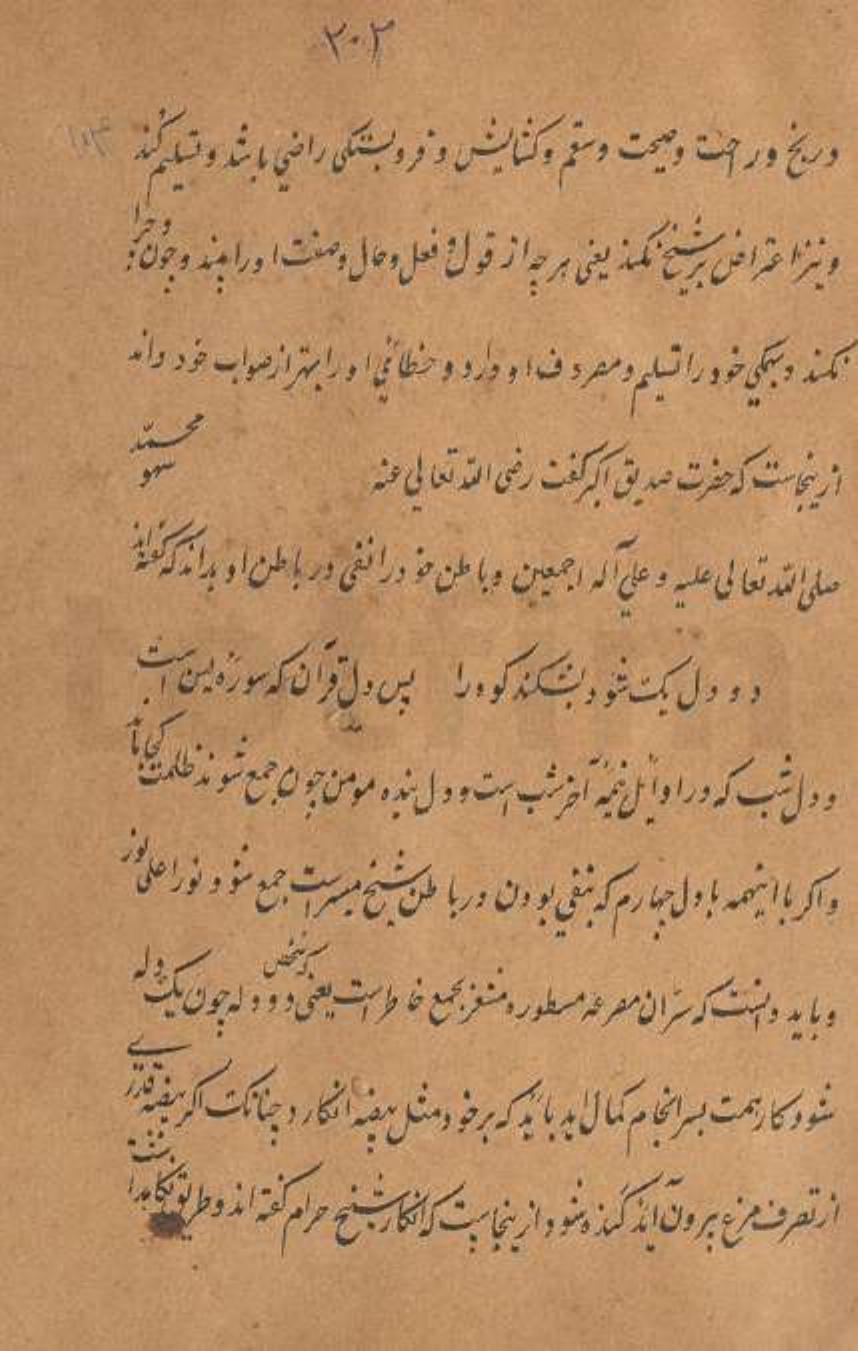 ۲۰۲
۱۰۳
و رنج و راحت و صحت و سقم و کشایش و فروبستگی راضی باشد و تسلیم کند
و نیز اعتراض بر شیخ نکند یعنی هر چه از قول و فعل و حال و صفت او را بیند و چون و چرا
نکند و بهمگی خود را تسلیم و مصروف او دارد و خطائی او را بهتر از صواب خود داند
ازینجاست که حضرت صدیق اکبر گفت رضی الله تعالی عنه سهو محمد
صلی الله تعالی علیه و علی آله اجمعین و باطن خود را نفی در باطن او بداند که گفته اند
دو دل یک شود بشکند کوه را پس دل قرآن که سوره یس است
و دل شب که در اوایل نیمه آخر شب است و دل بنده مومن چون جمع شوند ظلمت کجا ماند
و اکر با اینهمه با دل چهارم که بنفی بودن در باطن شیخ میسر است جمع شود نور اعلی نور
و باید دانست که سر آن مصرعه مسطوره بجمع خاطر است یعنی دو دله چون یک دله
شود کار همت بسرانجام کمال اید باید که بر خود مثل بیضه انکارد چنانکه اکر بیضه قدری
از تصرف مرغ بیرون آید کنده شود ازینجاست که انکار شیخ حرام گفته اند و طریق